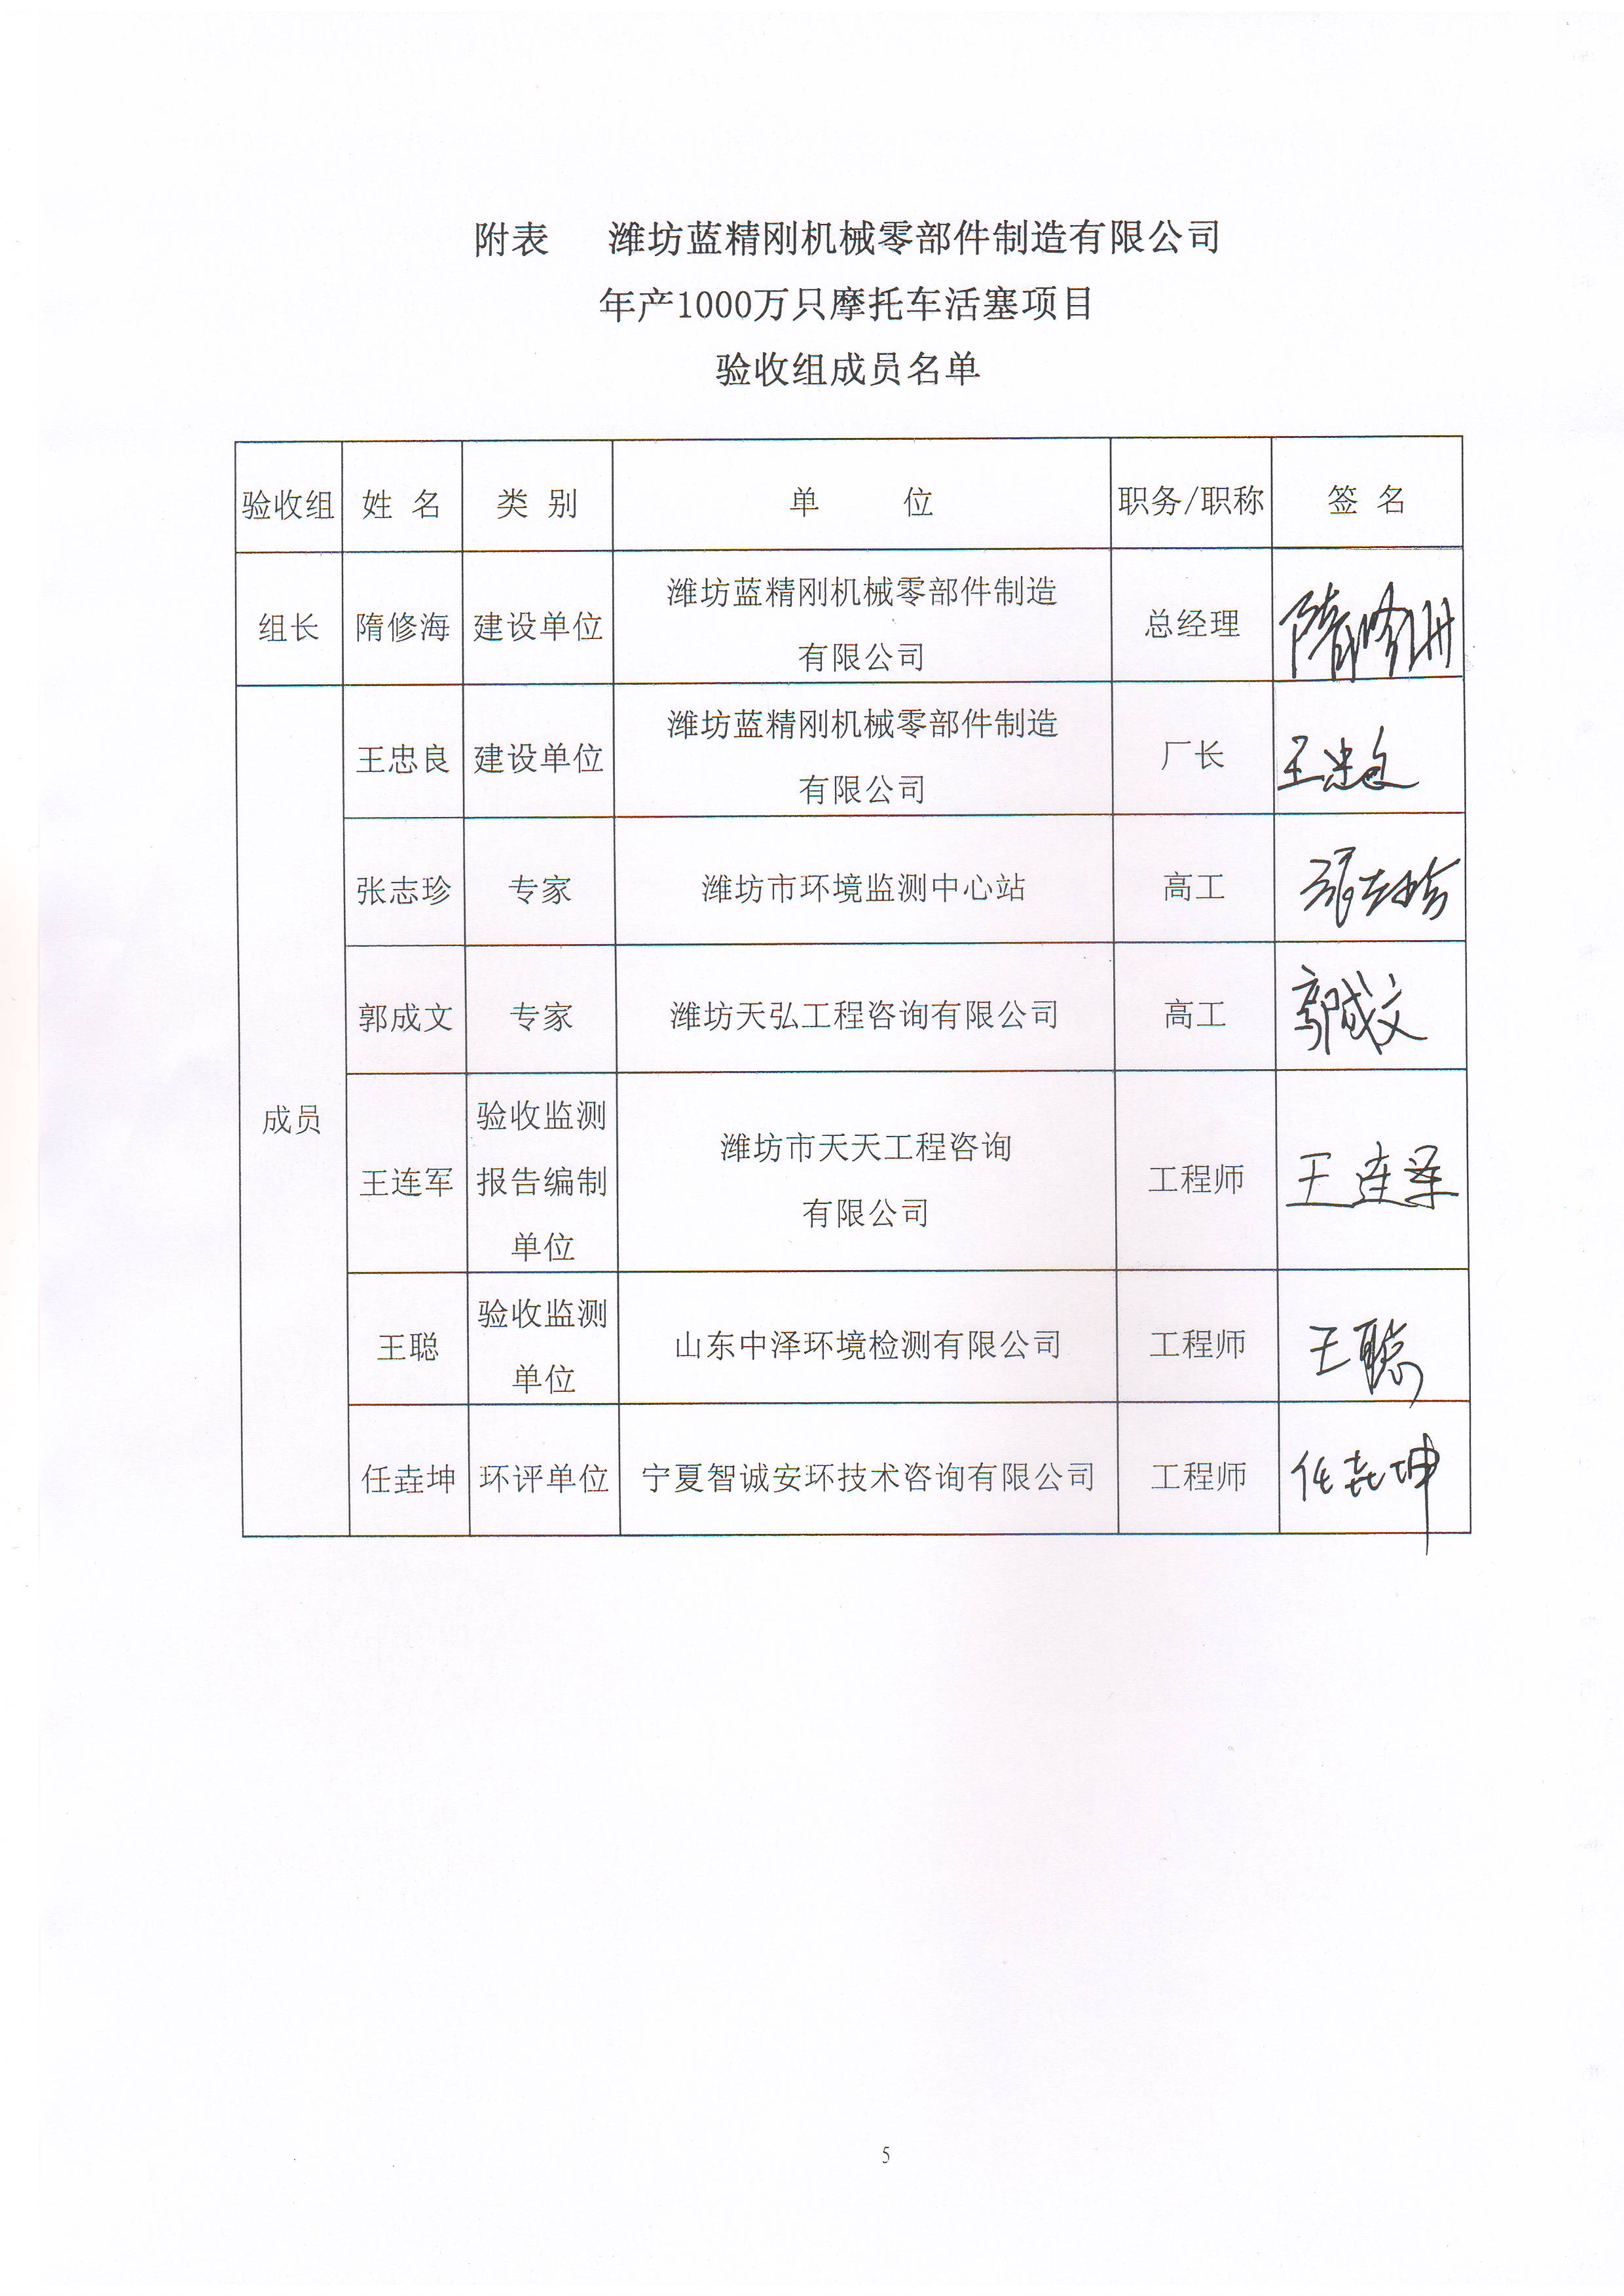 附表 潍坊蓝精刚机械零部件制造有限公司
年产1000万只摩托车活塞项目
验收组成员名单
验收组 姓名 类别 单位 职务/职称 签名
组长 隋修海 建设单位 潍坊蓝精刚机械零部件制造 总经理 隋修海
有限公司
王忠良 建设单位 潍坊蓝精刚机械零部件制造 厂长 王忠良
有限公司
张志珍 专家 潍坊市环境监测中心站 高工 张志珍
郭成文 专家 潍坊天弘工程咨询有限公司 高工 郭成文
成员
王连军 验收监测 潍坊市天天工程咨询 工程师 王连军
报告编制 有限公司
单位
王聪 验收监测 山东中泽环境检测有限公司 工程师 王聪
单位
任垚坤 环评单位 宁夏智诚安环技术咨询有限公司 工程师 任垚坤
5